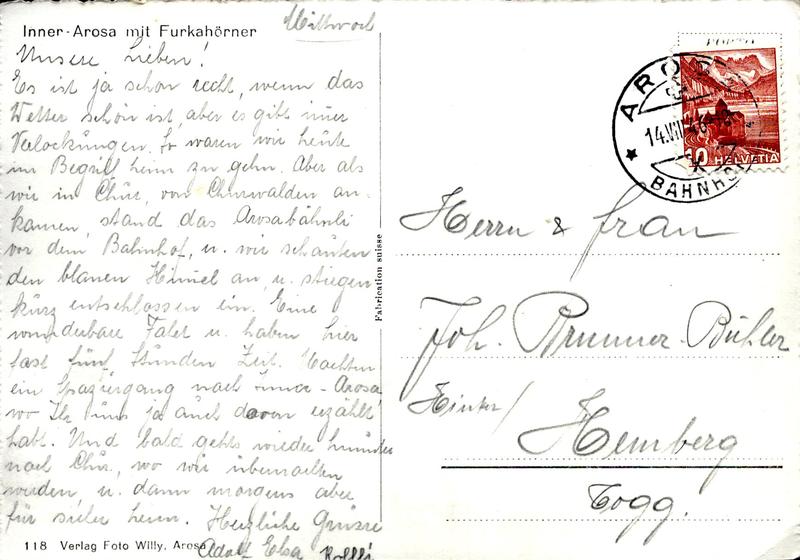 Inner-Arosa mit Furkahörner
Mittwoch
Unsere Lieben!
Es ist ja schon recht, wenn das
Wetter schön ist, aber es gibt imer
Verlockungen. So waren wir heute
im Begriff heim zu gehn. Aber als
wir in Chur, von Churwalden an-
kamen, stand das Arosabähnli
vor dem Bahnhof, u. wir schauten
den blauen Himel an, u. stiegen
kurz entschlossen ein. Eine
wunderbare Fahrt u. haben hier
fast fünf Stunden Zeit. Machten
ein Spaziergang nach Inner-Arosa
wo Ihr uns ja auch davon erzählt
habt. Und bald gehts wieder hinunter
nach Chur, wo wir übernachten
werden, u. dann morgens aber
für sicher heim. Herzliche Grüsse
Adolf Elsa
118 Verlag Foto Willy, Arosa
Fabrication suisse
AROSA
14.VIII.46
BAHNHOF
10 HELVETIA
Herrn & Frau
Joh. Brunner-Bühler
Hinter/
Hemberg
Togg.